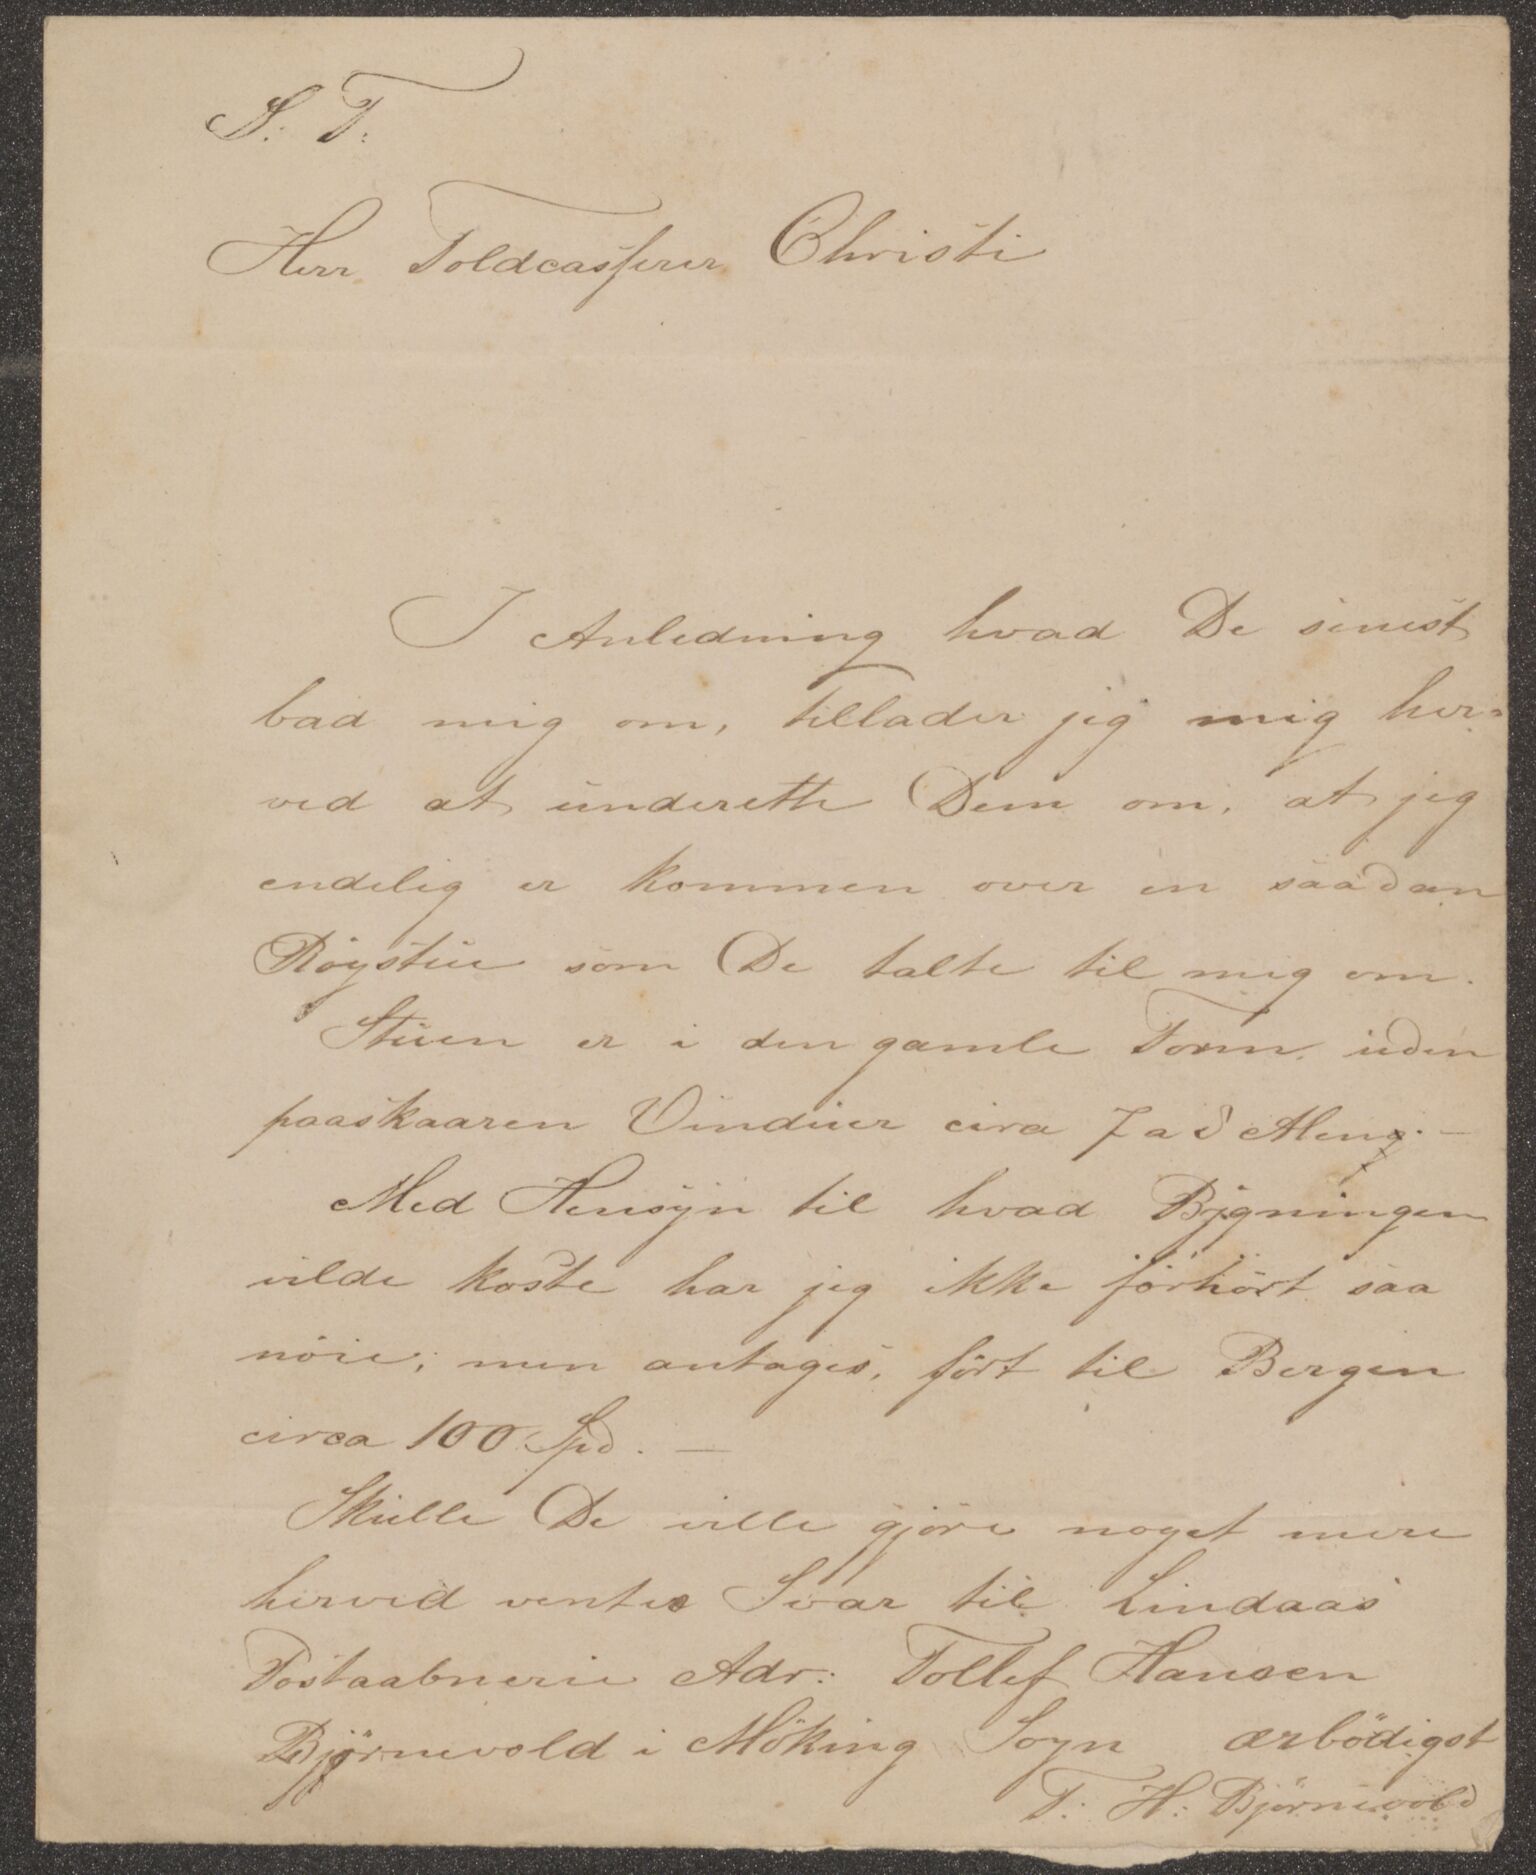 S: T:
Herr Toldcasserer Christi
I Anledning hvad De sinist
bad mig om, tillader jeg mig her=
ved at underette Dem om, at jeg
endelig er kommen over en saadan
Röystue som De talte til mig om.
Stuen er i den gamle Form uden
paaskaaren Vinduer circa 7 a 8 Alen. —
Med Hensyn til hvad Bygningen
vilde koste har jeg ikke forhört saa
nöie; men antages, fört til Bergen
circa 100 Spd. —
Skulle De ville gjöre noget mere
herved ventes Svar til Lindaas
Postaabnerie Adr: Tollef Hansen
Björnevold i Möking Sogn ærbödigst
T: H: Björnevold